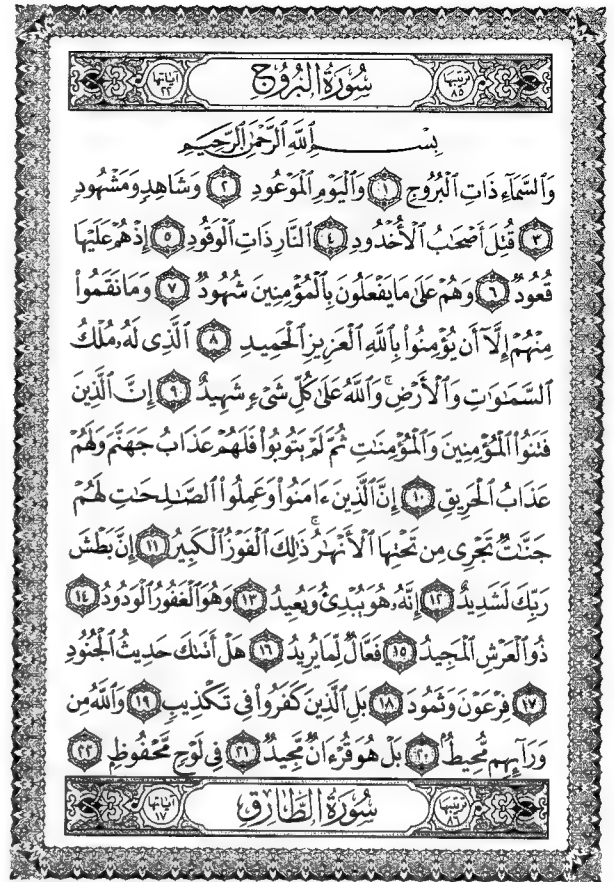 ترتيبها ٨٥ سُورَةُ الْبُرُوجِ آياتها ٢٢
بِسْمِ اللَّهِ الرَّحْمَٰنِ الرَّحِيمِ
وَالسَّمَآءِ ذَاتِ الْبُرُوجِ ١ وَالْيَوْمِ الْمَوْعُودِ ٢ وَشَاهِدٍ وَمَشْهُودٍ
٣ قُتِلَ أَصْحَٰبُ الْأُخْدُودِ ٤ النَّارِ ذَاتِ الْوَقُودِ ٥ إِذْ هُمْ عَلَيْهَا
قُعُودٌ ٦ وَهُمْ عَلَىٰ مَا يَفْعَلُونَ بِالْمُؤْمِنِينَ شُهُودٌ ٧ وَمَا نَقَمُوا۟
مِنْهُمْ إِلَّآ أَن يُؤْمِنُوا۟ بِاللَّهِ الْعَزِيزِ الْحَمِيدِ ٨ الَّذِى لَهُۥ مُلْكُ
السَّمَٰوَٰتِ وَالْأَرْضِ ۚ وَاللَّهُ عَلَىٰ كُلِّ شَىْءٍ شَهِيدٌ ٩ إِنَّ الَّذِينَ
فَتَنُوا۟ الْمُؤْمِنِينَ وَالْمُؤْمِنَٰتِ ثُمَّ لَمْ يَتُوبُوا۟ فَلَهُمْ عَذَابُ جَهَنَّمَ وَلَهُمْ
عَذَابُ الْحَرِيقِ ١٠ إِنَّ الَّذِينَ ءَامَنُوا۟ وَعَمِلُوا۟ الصَّٰلِحَٰتِ لَهُمْ
جَنَّٰتٌ تَجْرِى مِن تَحْتِهَا الْأَنْهَٰرُ ۚ ذَٰلِكَ الْفَوْزُ الْكَبِيرُ ١١ إِنَّ بَطْشَ
رَبِّكَ لَشَدِيدٌ ١٢ إِنَّهُۥ هُوَ يُبْدِئُ وَيُعِيدُ ١٣ وَهُوَ الْغَفُورُ الْوَدُودُ ١٤
ذُو الْعَرْشِ الْمَجِيدُ ١٥ فَعَّالٌ لِّمَا يُرِيدُ ١٦ هَلْ أَتَىٰكَ حَدِيثُ الْجُنُودِ
١٧ فِرْعَوْنَ وَثَمُودَ ١٨ بَلِ الَّذِينَ كَفَرُوا۟ فِى تَكْذِيبٍ ١٩ وَاللَّهُ مِن
وَرَآئِهِم مُّحِيطٌۢ ٢٠ بَلْ هُوَ قُرْءَانٌ مَّجِيدٌ ٢١ فِى لَوْحٍ مَّحْفُوظٍۭ ٢٢
ترتيبها ٨٦ سُورَةُ الطَّارِقِ آياتها ١٧